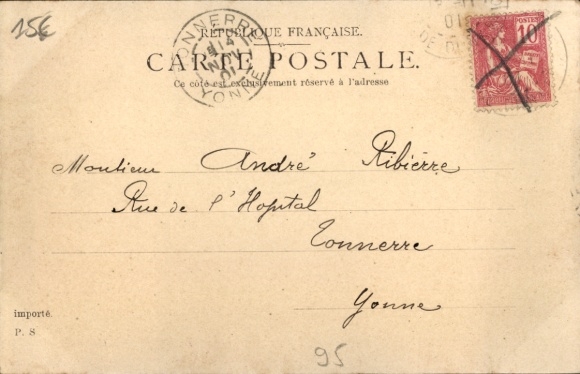 15€
RÉPUBLIQUE FRANÇAISE.
CARTE POSTALE.
Ce côté est exclusivement réservé à l'adresse
TONNERRE
YONNE
POSTES
10
Monsieur André Ribièrre
Rue de l'Hopital
Tonnerre
Yonne
importé.
P. S
95